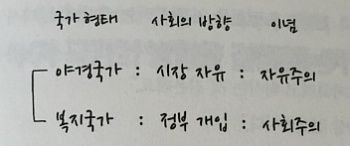 국가 형태 사회의 방향 이념
야경국가 : 시장 자유 : 자유주의
복지국가 : 정부 개입 : 사회주의